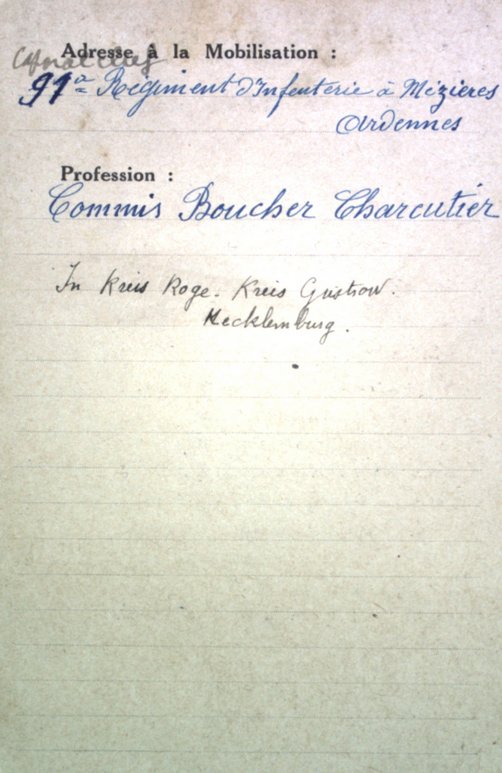 Adresse à la Mobilisation :
91e Régiment d'Infenterie à Mézières
Ardennes
Profession :
Commis Boucher Charcutier
In Kreis Roge. Kreis Güstrow.
Mecklemburg.